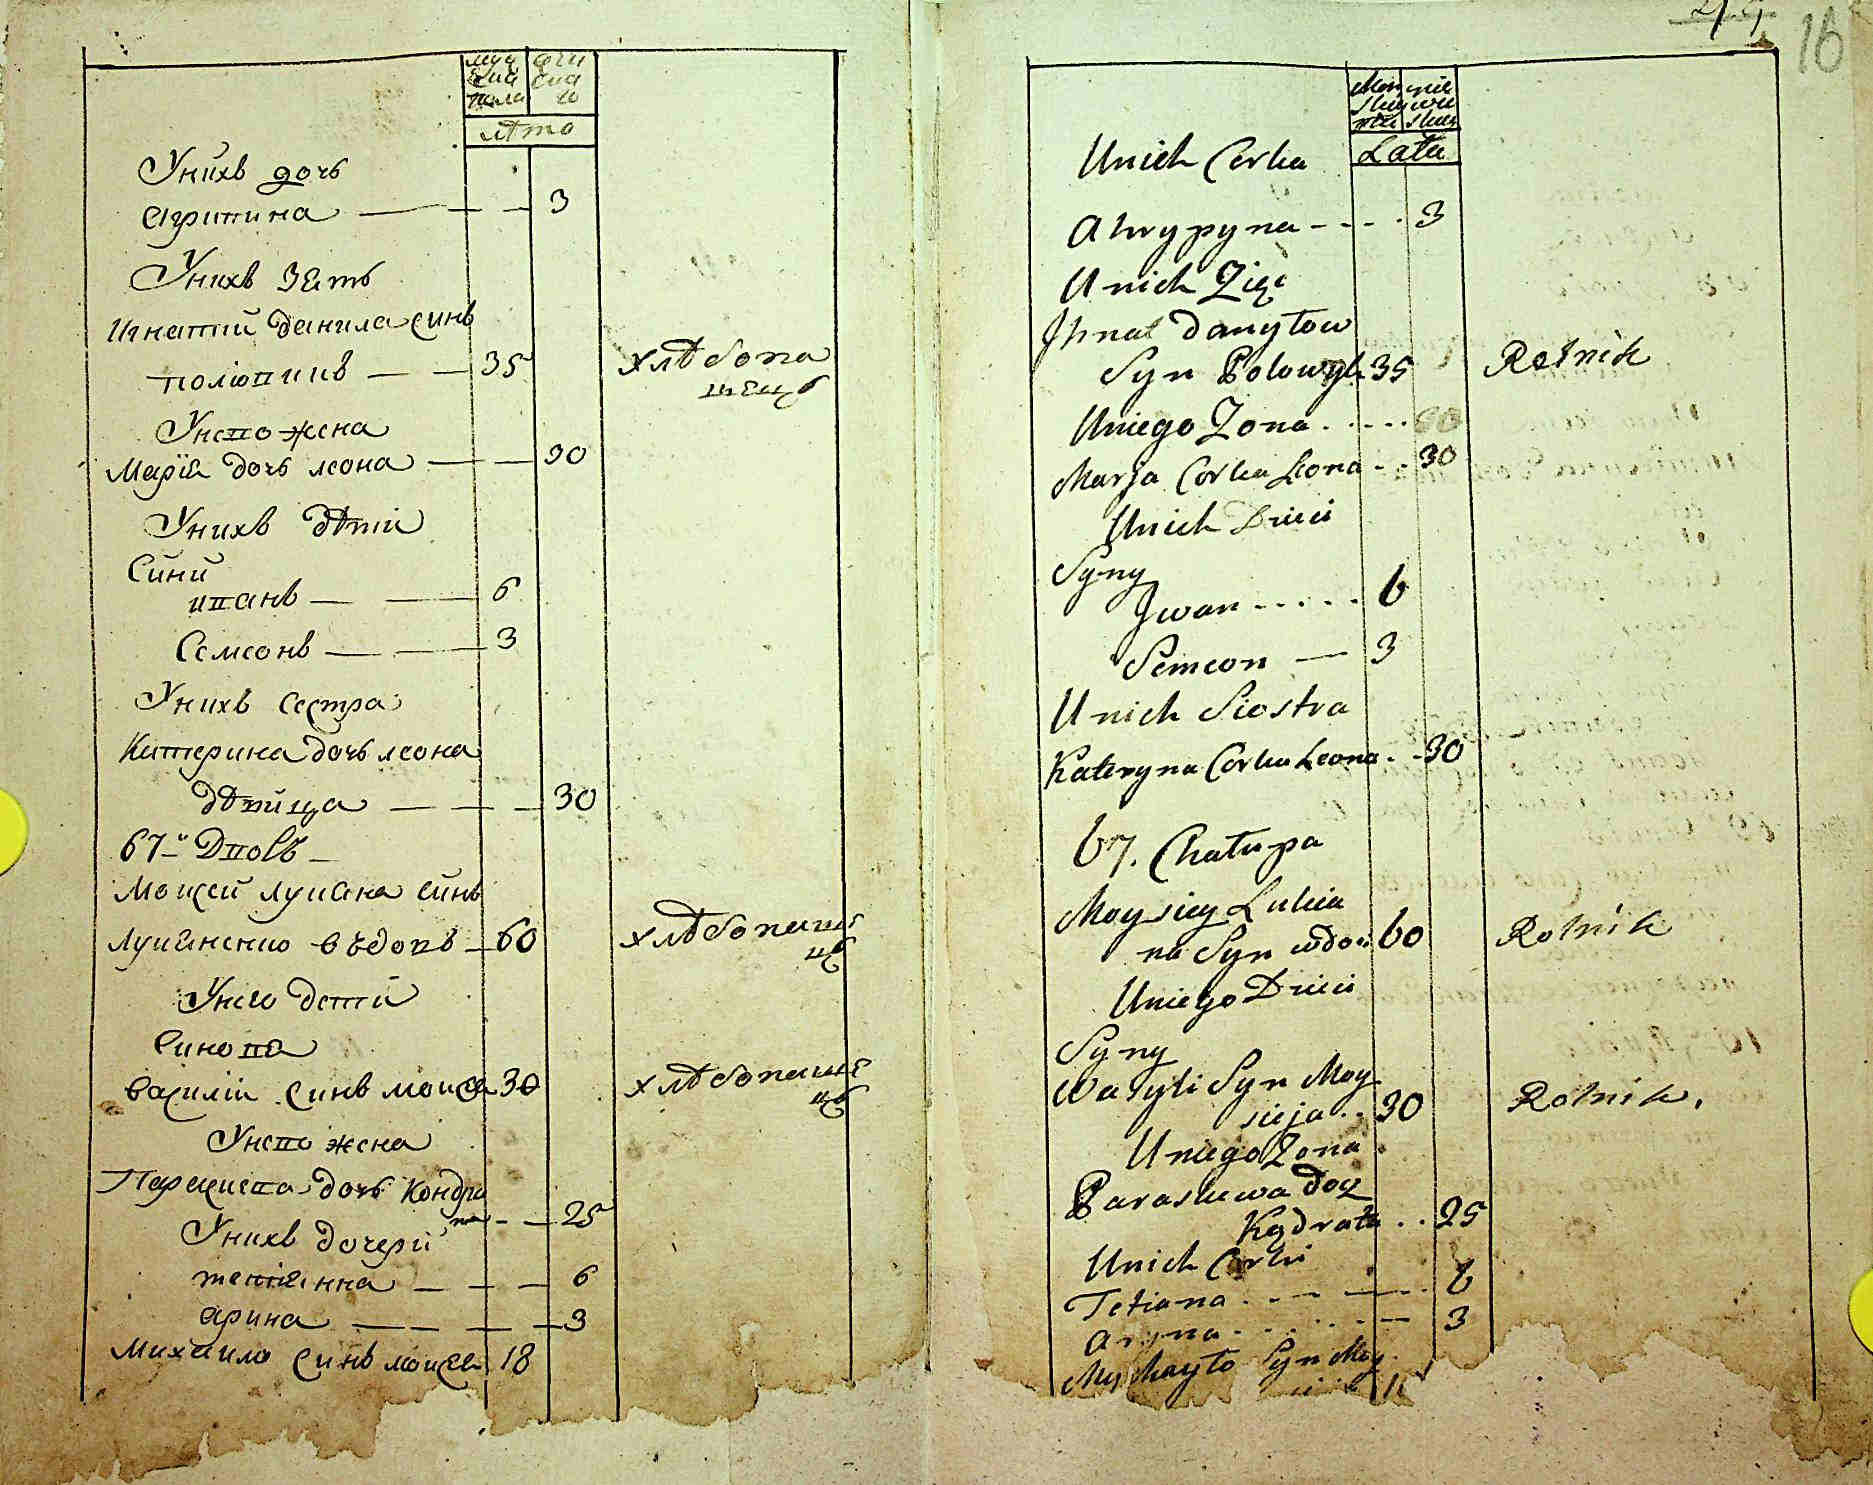 муж
ский
пола
женска
го
лѣто
Унихъ дочь
агрипина 3
Унихъ зять
игнатий данила синъ
35
хлѣбопа
шецъ
Унего жена
Марія дочь леона 30
Унихъ дѣти
Сини
иванъ 6
Семеонъ 3
Унихъ сестра
Катерина дочь леона
дѣвица 30
67й Дворъ
Моисей лукиана синъ
лукиненко въдовъ 60
хлѣбопаше
цъ
Унего дети
Синова
василій синъ моисея 30
хлѣбопаше
цъ
Унего жена
Параскева дочь Кондра
та 25
Унихъ дочери
татиянна 6
арина 3
Михаило синъ моисея 18
16
Męz
skiey
płci
Lata
Unich Corka
Ahrypyna 3
Unich Zięc
Ihnat Danyłow
Syn Połowyk 35 Rolnik
Uniego Zona
Marja Corka Leona 30
Unich Dzieci
Syny
Jwan 6
Semeon 3
Unich Siostra
Kateryna Corka Leona 30
67. Chałupa
Moysiey Lukia
na Syn wdow 60 Rolnik
Uniego Dzieci
Syny
Wasyli Syn Moy
sieja 30 Rolnik.
Uniego Zona
Paraskewa Doч
Kądrata 25
Unich Corki
Tetiana 6
Aryna 3
Myhayło Syn Moy